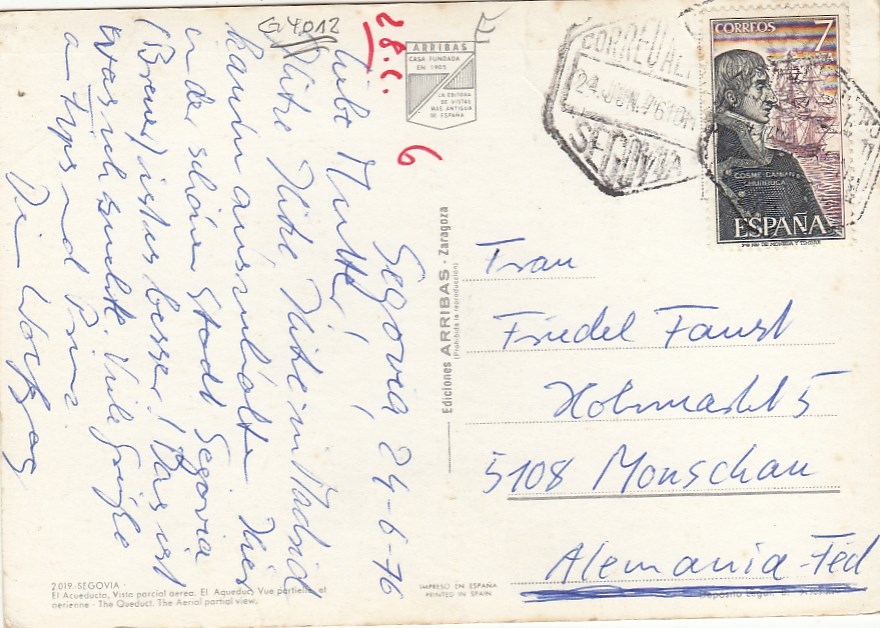 G 4012
28.C.
6
ARRIBAS
CASA FUNDADA
EN 1905
LA EDITORA
DE VISTAS
MAS ANTIGUA
DE ESPAÑA
Segovia 24-6-76
Liebe Mutter!
Hitze Hitze Hitze in Madrid
kaum auszuhalten Hier
in der schönen Stadt Segovia
ist es besser! Das ist
was ich suchte. Viele Grüße
an und
Dein Wolfgang
2019. SEGOVIA -
El Acueducto, Vista parcial aerea. El Aqueduc, Vue partielle et
aerienne - The Queduct. The Aerial partial view.
Ediciones ARRIBAS - Zaragoza
(Prohibida la reproducción)
IMPRESO EN ESPAÑA
PRINTED IN SPAIN
CORREO
24.JUN.76
SEGOVIA
CORREOS 7
COSME DAMIAN
CHURRUCA
ESPAÑA
Frau
Friedel Faust
Holzmarkt 5
5108 Monschau
Alemania-Fed
Deposito Legal